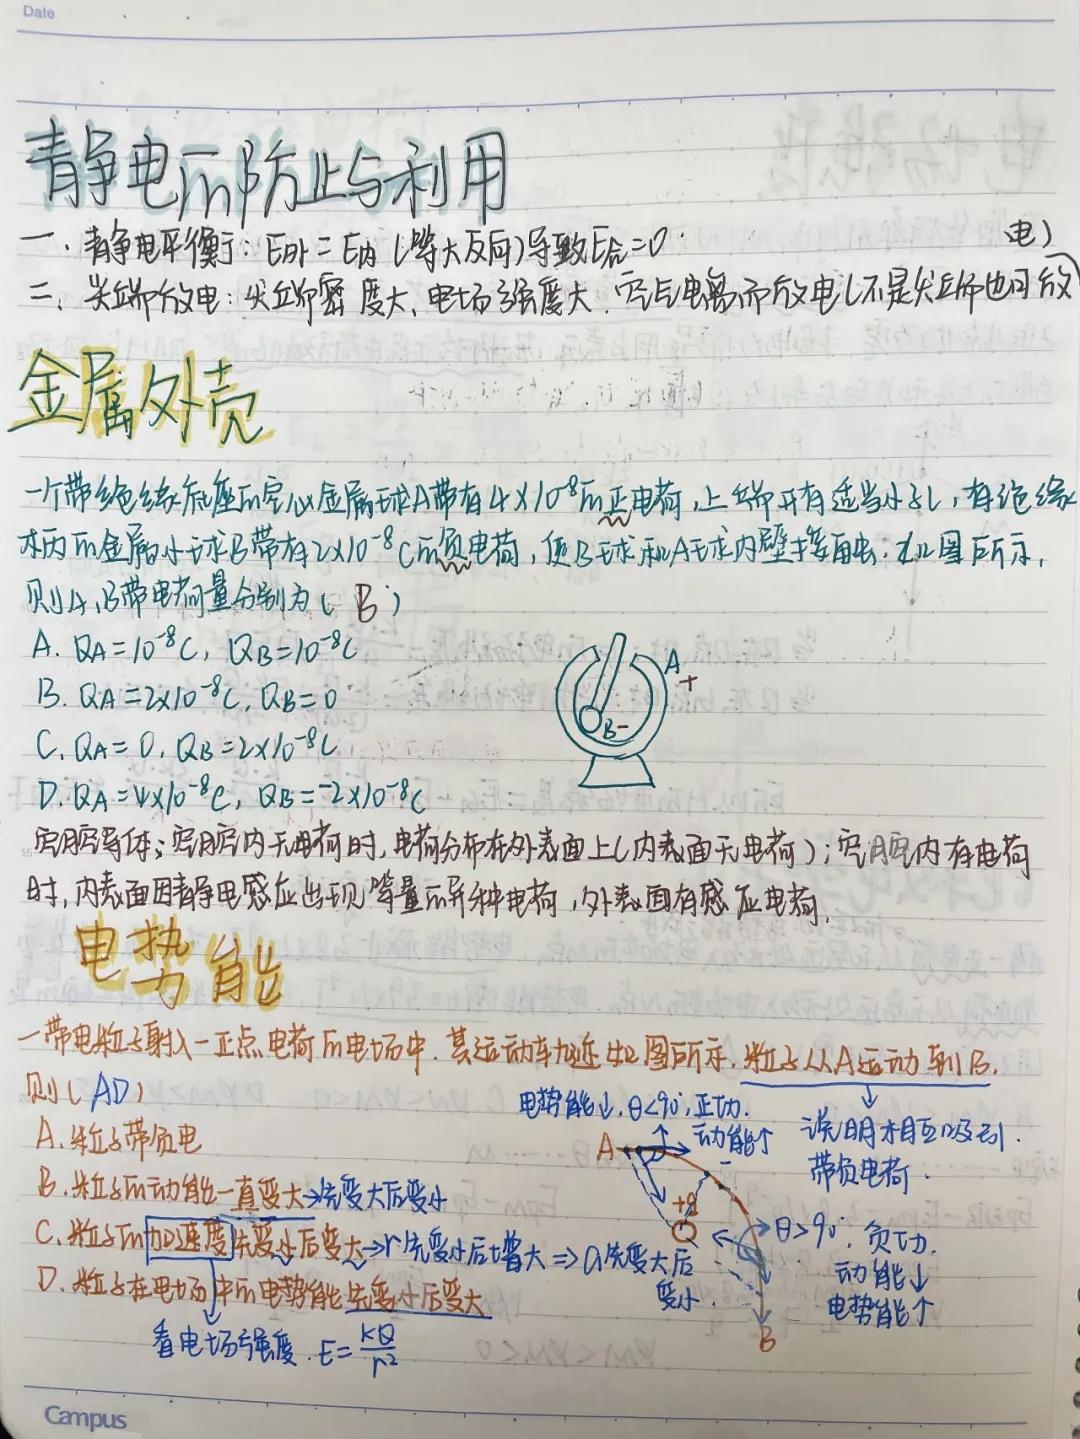 Date
静电的防止与利用
一. 静电平衡: E外=E内 (等大反向) 导致E合=0
二. 尖端放电: 尖端密度大, 电场强度大. 空气电离而放电(不是尖端也可放
电)
金属外壳
一个带绝缘底座的空心金属球A带有4×10⁻⁸的正电荷, 上端开有适当小孔, 有绝缘
柄的金属小球B带有2×10⁻⁸C的负电荷, 使B球和A球内壁接触. 如图所示,
则A、B带电荷量分别为( B )
A. QA=10⁻⁸C, QB=10⁻⁸C
B. QA=2×10⁻⁸C, QB=0
C. QA=0. QB=2×10⁻⁸C
D. QA=4×10⁻⁸C, QB=-2×10⁻⁸C
A
+
B-
空腔导体: 空腔内无电荷时, 电荷分布在外表面上(内表面无电荷); 空腔内有电荷
时, 内表面因静电感应出现等量的异种电荷, 外表面有感应电荷.
电势能
一带电粒子射入一正点电荷的电场中. 其运动轨迹如图所示, 粒子从A运动到B.
则( AD )
A. 粒子带负电
B. 粒子的动能一直变大→先变大后变小
C. 粒子的加速度先变小后变大→r先变小后增大⇒a先变大后
变小.
D. 粒子在电场中的电势能先变小后变大
看电场强度. E=kQ/r²
电势能↓. θ<90°, 正功.
动能↑
说明相互吸引.
带负电荷.
A
+q
Q
θ>90°. 负功.
动能↓
电势能↑
B
Campus